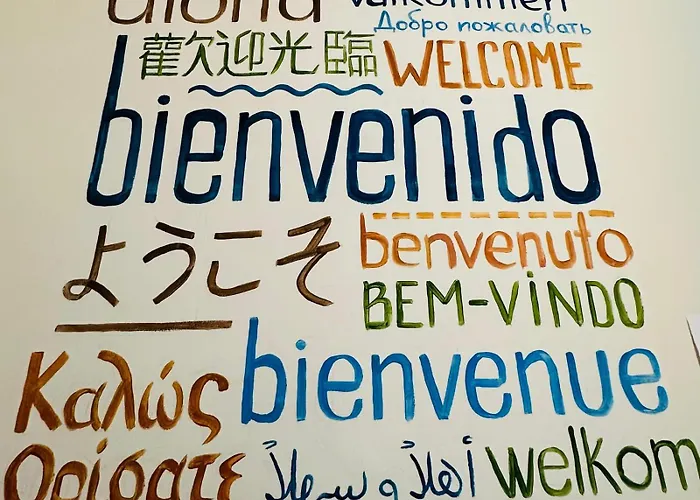 aloha
Valkommen
Добро пожаловать
歡迎光臨
WELCOME
bienvenido
ようこそ
benvenuto
BEM-ViNDO
Καλώς
bienvenue
Ορίσατε
أهلاً و سهلاً
welkom